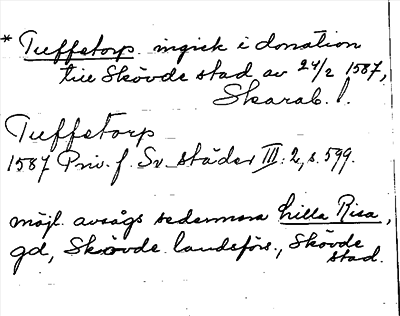 * Tuffetorp ingick i donation
till Skövde stad av 24/2 1587,
Skarab. l.
Tuffetorp
1587 Priv. f. Sv. städer III: 2, s. 599.
möjl. avsågs sedermera Lilla Risa,
gd, Skövde landsförs., Skövde
stad.